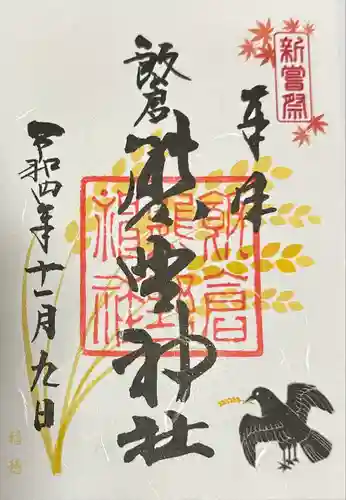 新嘗祭
奉拝
飯倉
熊野神社
飯倉熊野神社
令和四年十一月九日